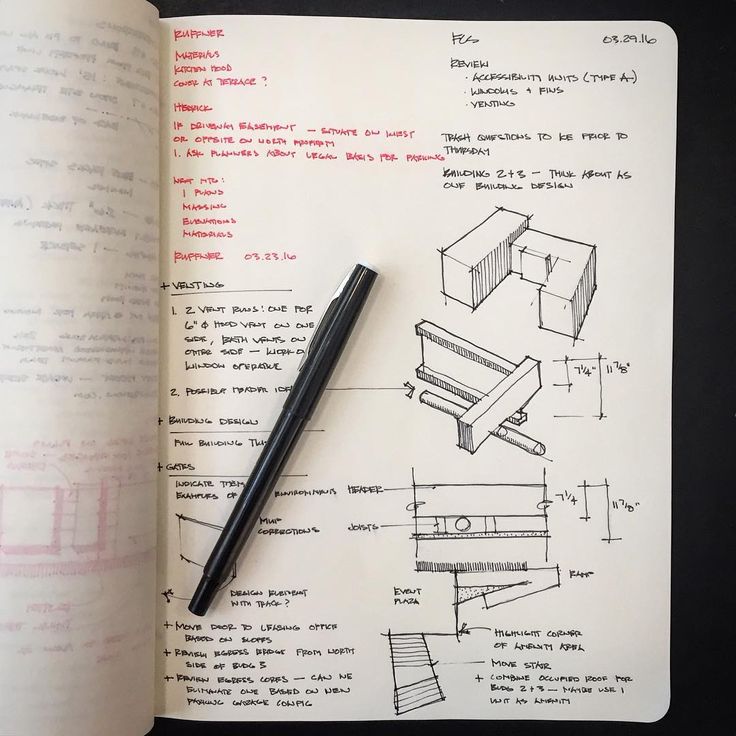 RUFFNER
MATERIALS
KITCHEN HOOD
COVER AT TERRACE?
HEDRICK
IF DRIVEWAY EASEMENT — SITUATE ON WEST
OR OFFSITE ON NORTH PROPERTY
1. ASK PLANNERS ABOUT LEGAL BASIS FOR PARKING
NEXT MTG:
1 PLANS
MASSING
ELEVATIONS
MATERIALS
RUFFNER 03.23.16
+ VENTING
1. 2 VENT RUNS: ONE FOR
6" Φ HOOD VENT ON ONE
SIDE, BATH VENTS ON
OTHER SIDE — WORK
WINDOW OPERABLE
2. POSSIBLE HEADER
+ BUILDING DESIGN
FULL BUILDING
+ GATES
INDICATE THEM
EXAMPLES OF ENVIRONMENTS
MUP
CORRECTIONS
DESIGN ELEMENT
WITH TRACK?
+ MOVE DOOR TO LEASING OFFICE
BASED ON SLOPES
+ REVIEW EGRESS BRIDGE FROM NORTH
SIDE OF BLDG 3
+ REVIEW EGRESS CORES — CAN WE
ELIMINATE ONE BASED ON NEW
PARKING GARAGE CONFIG
FCS 03.29.16
REVIEW
· ACCESSIBILITY UNITS (TYPE A)
· WINDOWS + FINS
· VENTING
TRASH QUESTIONS TO KE PRIOR TO
THURSDAY
BUILDING 2+3 — THINK ABOUT AS
ONE BUILDING DESIGN
7 1/4" 11 7/8"
HEADER
JOISTS
7 1/4 11 7/8"
EVENT
PLAZA
RAMP
HIGHLIGHT CORNER
OF AMENITY AREA
MOVE STAIR
+ COMBINE OCCUPIED ROOF FOR
BLDG 2+3 — MAYBE USE 1
UNIT AS AMENITY